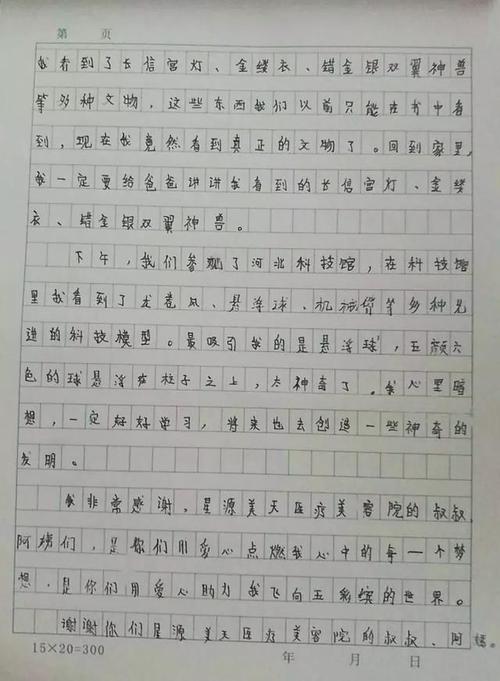 第 页
我看到了长信宫灯、金缕衣、错金银双翼神兽
等多种文物，这些东西我们以前只能在书中看
到，现在我竟然看到真正的文物了。回到家里，
我一定要给爸爸讲讲我看到的长信宫灯、金缕
衣、错金银双翼神兽。
下午，我们参观了河北科技馆，在科技馆
里我看到了龙卷风、悬浮球、机械臂等多种先
进的科技模型。最吸引我的是悬浮球，五颜六
色的球悬浮在柱子之上，太神奇了。我心里暗
想，一定好好学习，将来也去创造一些神奇的
发明。
我非常感谢，星源美天医疗美容院的叔叔
阿姨们，是你们用爱心点燃我心中的每一个梦
想，是你们用爱心助力我飞向五彩缤的世界。
谢谢你们星源美天医疗美容院的叔叔、阿姨。
15×20=300 年 月 日